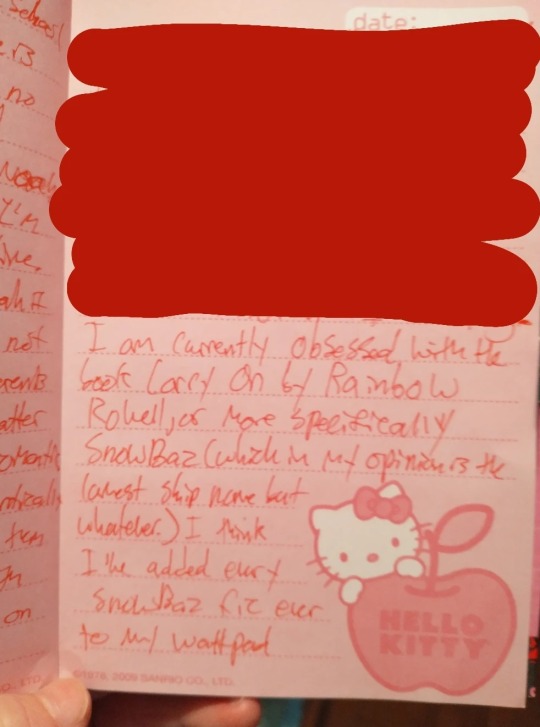 school
no
I'm
ah I
not
on
date:
I am currently obsessed with the
book Carry On by Rainbow
Rowell, or more specifically
SnowBaz (which in my opinion is the
lamest ship name but
whatever.) I think
I've added every
SnowBaz fic ever
to my wattpad
HELLO
KITTY
©1976, 2009 SANRIO CO., LTD.
O., LTD.